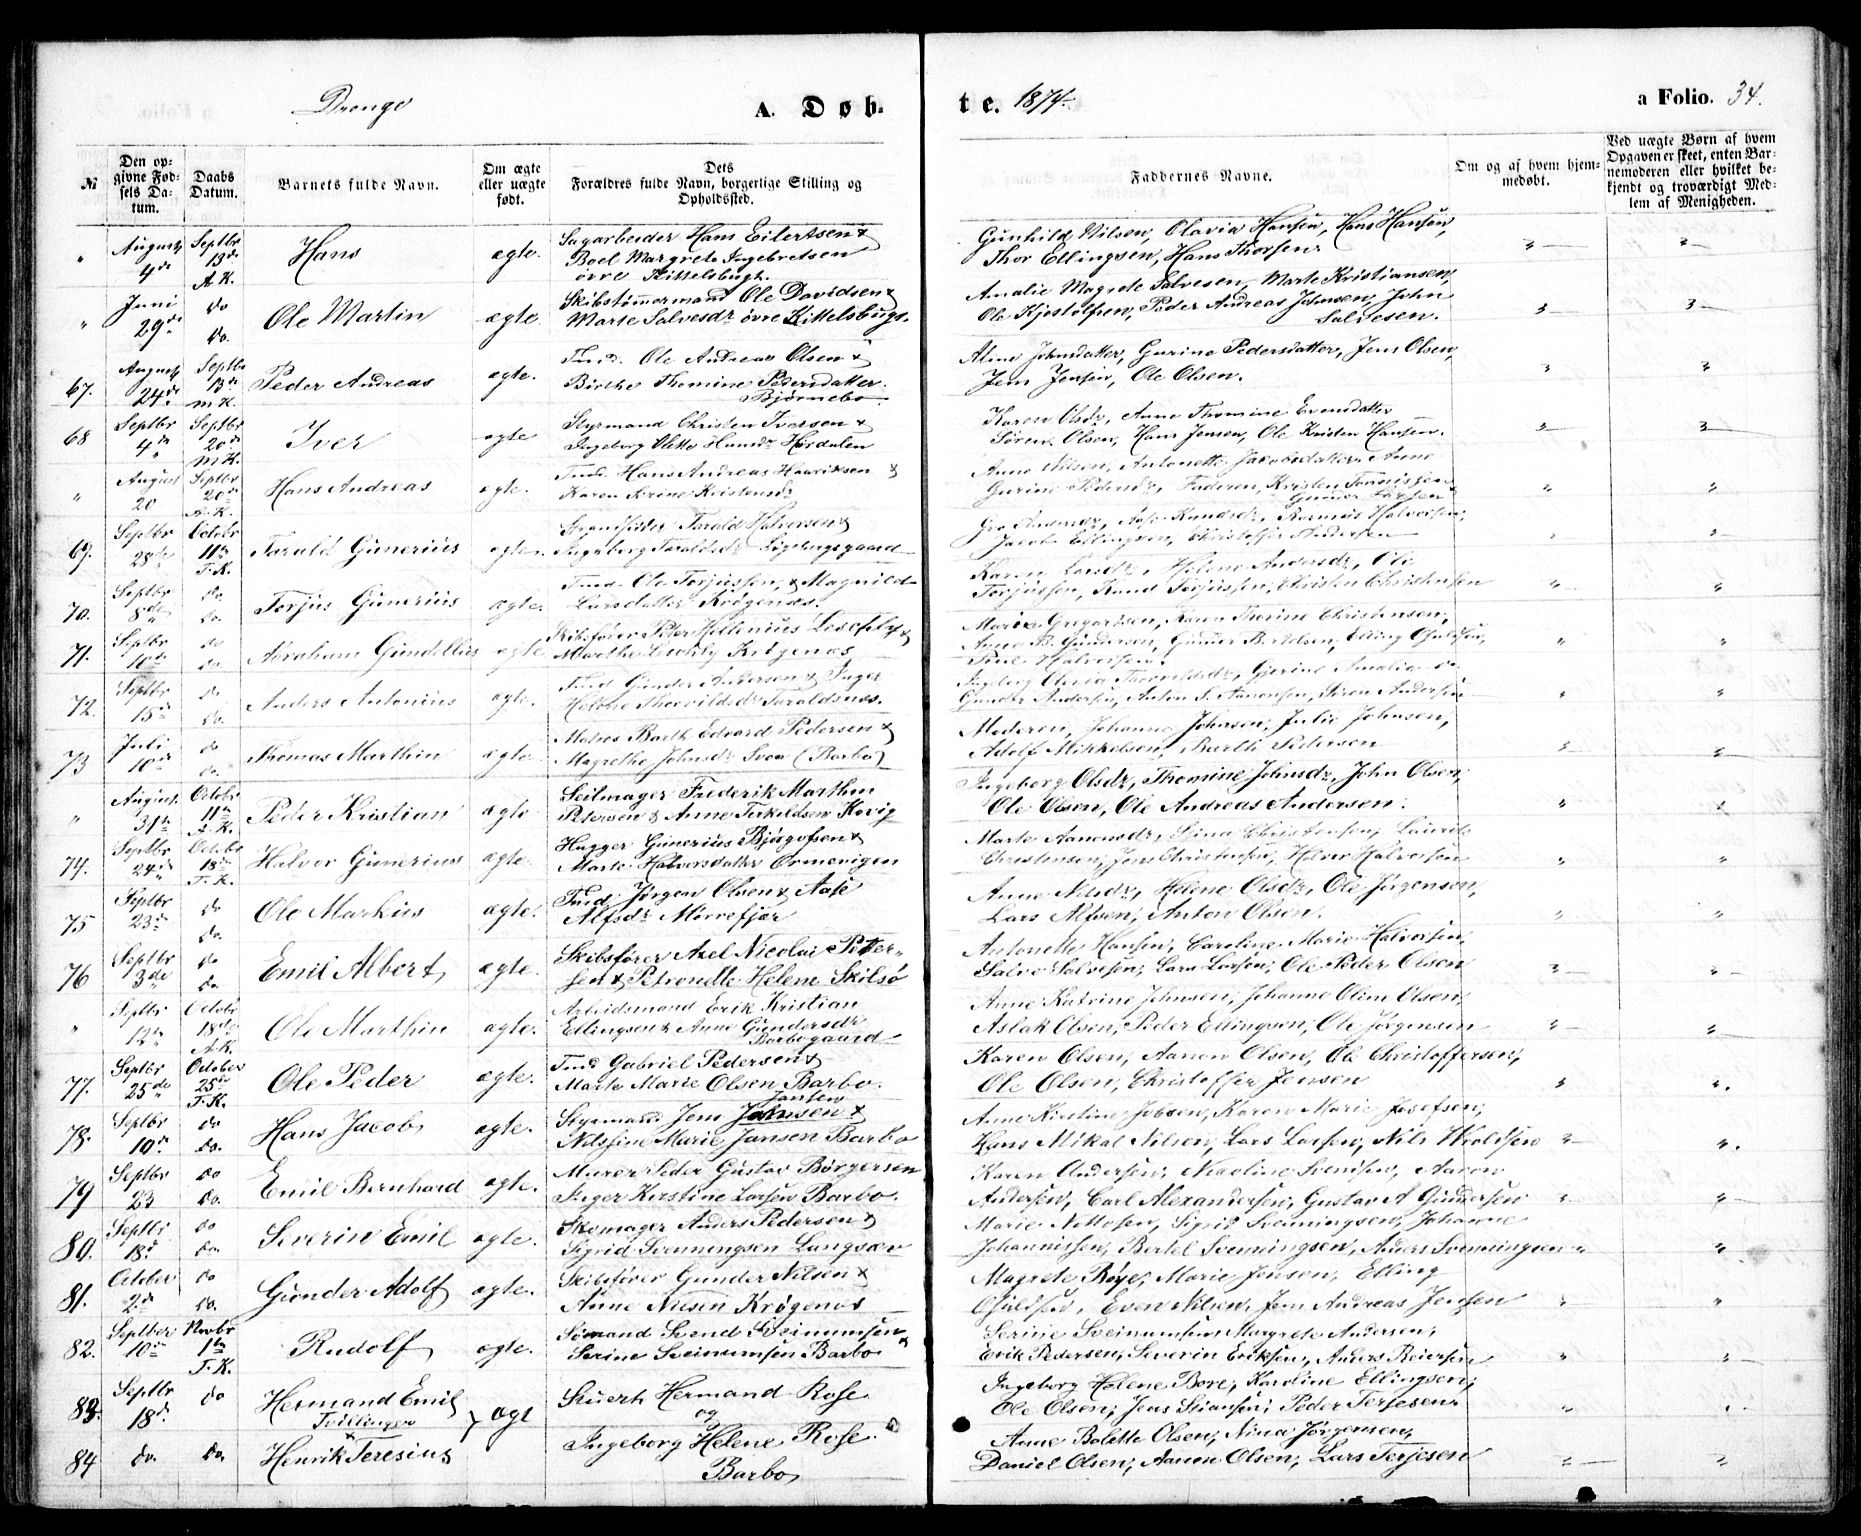 Drenge
A. Døb-
te. 1874.
a Folio. 34.
№
Den op-
givne Fød-
sels Da-
tum.
Daabs
Datum.
Barnets fulde Navn.
Om ægte
eller uægte
født.
Dets
Forældres fulde Navn, borgerlige Stilling og
Opholdssted.
Faddernes Navne.
Om og af hvem hjem-
medøbt.
Ved uægte Børn af hvem
Opgaven er skeet, enten Bar-
nemoderen eller hvilket be-
kjendt og troværdigt Med-
lem af Menigheden.
" August 4de Septbr 13de A.K. Hans ægte. Sagarbeider Hans Eilertsen &
Boel Margrete Ingebretsen
øvre Kittelsbugt.
Gunhild Nilsen, Olavia Hansen, Hans Hansen,
Thor Ellingsen, Hans Thorsen.
" Juni 29de do do. Ole Martin ægte Skibstømmermand Ole Davidsen &
Marte Salvesdr øvre Kittelsbugt.
Amalie Magrete Salvesen, Marte Kristiansen,
Ole Kjostolfsen, Peder Andreas Johnsen, John
Salvesen.
67. August 24de Septbr 13de M.K. Peder Andreas ægte. Tmd. Ole Andreas Olsen &
Birthe Thomine Pedersdatter.
Bjørnebo
Aline Johnsdatter, Gurine Pedersdatter, Jens Olsen,
Jens Jensen, Ole Olsen.
68 Septbr 4de Septbr 20de M.K. Iver ægte Styrmand Christen Iversen &
Ingeborg Hordalen
Karen Olsdr, Anne Thomine Evensdatter
Søren Olsen, Hans Jensen, Ole Kristen Hansen.
" August 20 Septbr 20de A.K. Hans Andreas ægte. Tmd. Hans Andreas Henriksen &
Karen Kristensdr
Anne Nilsen, Antonette Jacobsdatter, Anne
Gurine Pedersdr, Faderen, Kristen Tønnissen
Gunder Larsen
69. Septbr 28de Octobr 11te T.K. Tarald Gunerius ægte. Strandsidder Tarald Halvorsen &
Ingeborg Taraldsdr
Gro Andersdr, Aase Knudsdr, Rasmus Halvorsen,
Jacob Ellingsen, Christoffer Andersen
70. Septbr 8de do do. Torjus Gunerius ægte. Tmd. Ole Torjussen & Magnild
Larsdatter Krøgenæs.
Karen Larsdr, Helene Andersdr, Ole
Torjussen, Knud Torjussen, Christen Christensen
71. Septbr 10de do do. Abraham Gundellius ægte Skibsfører Peter Leschly &
Marthe Leschly Krøgenæs
Marie Gregersen, Karen Thorine Christensen,
Anne B. Gundersen, Gunner Bertelsen, Elling Gjuldsen,
Poul Halvorsen.
72. Septbr 15de do do. Anders Antonius ægte. Tmd Gunder Andersen & Inger
Helene Thorvildsdr Taraldsnes.
Ingeborg Olevia Thorvildsdr, Gjerine Amalie do
Gunder Andersen, Anton S. Aanonsen, Søren Andersen
73 Juli 10de do do. Thomas Marthin ægte Matros Barth Edvard Pedersen &
Magrethe Johnsdr Svea (Barbo)
Moderen, Johanne Johnsen, Julie Johnsen,
Adolf Mikkelsen, Barth Pedersen
" August. 31te Octobr 11te A.K. Peder Kristian ægte Seilmager Frederik Marthin
Petersen & Anne Terkildsen Kvig
Ingeborg Olsdr, Thomine Johnsdr, John Olsen,
Ole Olsen, Ole Andreas Andersen.
74. Septbr 24de Octobr 18de T.K. Halvor Gunerius ægte. Hugger Gunerius Bjugofsen &
Marte Halvorsdatter Ormevigen
Marte Aanonsdr, Stina Christensen, Laurits
Christensen, Jens Christensen, Halvor Halvorsen
75 Septbr 23de do do. Ole Markus ægte. Tmd Jørgen Olsen & Aase
Alfsdr Mörrefjær
Anne Nilsdr, Helene Olsdr, Ole Jørgensen,
Lars Alfsen, Anton Olsen.
76 Septbr 3de do do. Emil Albert ægte. Skibsfører Axel Nicolai Peter-
sen & Petronelle Helene Skilsø
Antonette Hansen, Caroline Marie Halvorsen,
Salve Salvesen, Lars Larsen, Ole Peder Olsen
" Septbr 12te Octobr 18de A.K. Ole Marthin ægte. Arbeidsmand Erik Kristian
Ellingsen & Anne Gundersdr
Barbogaard
Anne Katrine Johnsen, Johanne Oline Olsen,
Aslak Olsen, Peder Ellingsen, Ole Jørgensen
77. Septbr 25de October 25de T.K. Ole Peder ægte. Tmd Gabriel Pedersen &
Marte Marie Olsen Barbo.
Karen Olsen, Aanon Olsen, Ole Christoffersen,
Ole Olsen, Christoffer Jensen
78. Septbr 19de do do. Hans Jacob ægte. Jansen
Styrmand Jens Johnsen &
Nilsine Marie Jansen Barbo
Anne Kirstine Jobsen, Karen Marie Josefsen,
Hans Mikal Nilsen, Lars Larsen, Nils Woldsen
79 Septbr 23 do do. Emil Bernhard ægte. Murer Peder Gustav Børgersen
Inger Kirstine Larsen Barbo.
Karen Andersen, Nicoline Svensen, Aanon
Andersen, Carl Alexandersen, Gustav A Gundersen
80. Septbr 18de do do. Severin Emil ægte. Skomager Anders Pedersen &
Sigrid Svenningsen Langsæv
Marie Nettosen, Sigrid Svenningsen, Johanne
Johannissen, Bertel Svenningsen, Anders Svenningsen
81. October 2de do do. Gunder Adolf ægte. Skibsfører Gunder Nilsen &
Anne Nilsen Krøgenæs
Magrete Røye, Marie Jensen, Elling
Gjuldsen, Even Nilsen, Jens Andreas Jensen
82. Septber 10de Novbr 1te T.K. Rudolf ægte. Sømand Svend Sveinumsen &
Serine Sveinumsen Barbo
Serine Sveinumsen, Margrete Andersen,
Erik Pedersen, Severin Eriksen, Anders Reiersen
83. Septbr 18de do Hermand Emil
Tvillinger
ægt Stuert Hermand Rose
og
Ingeborg Helene Bore, Karoline Ellingsen,
Ole Olsen, Jens Stiansen, Peder Terjesen
84 do. do. Henrik Teresius Ingeborg Helene Rose.
Barbo
Anne Bolette Olsen, Nina Jørgensen,
Daniel Olsen, Aanon Olsen, Lars Terjesen